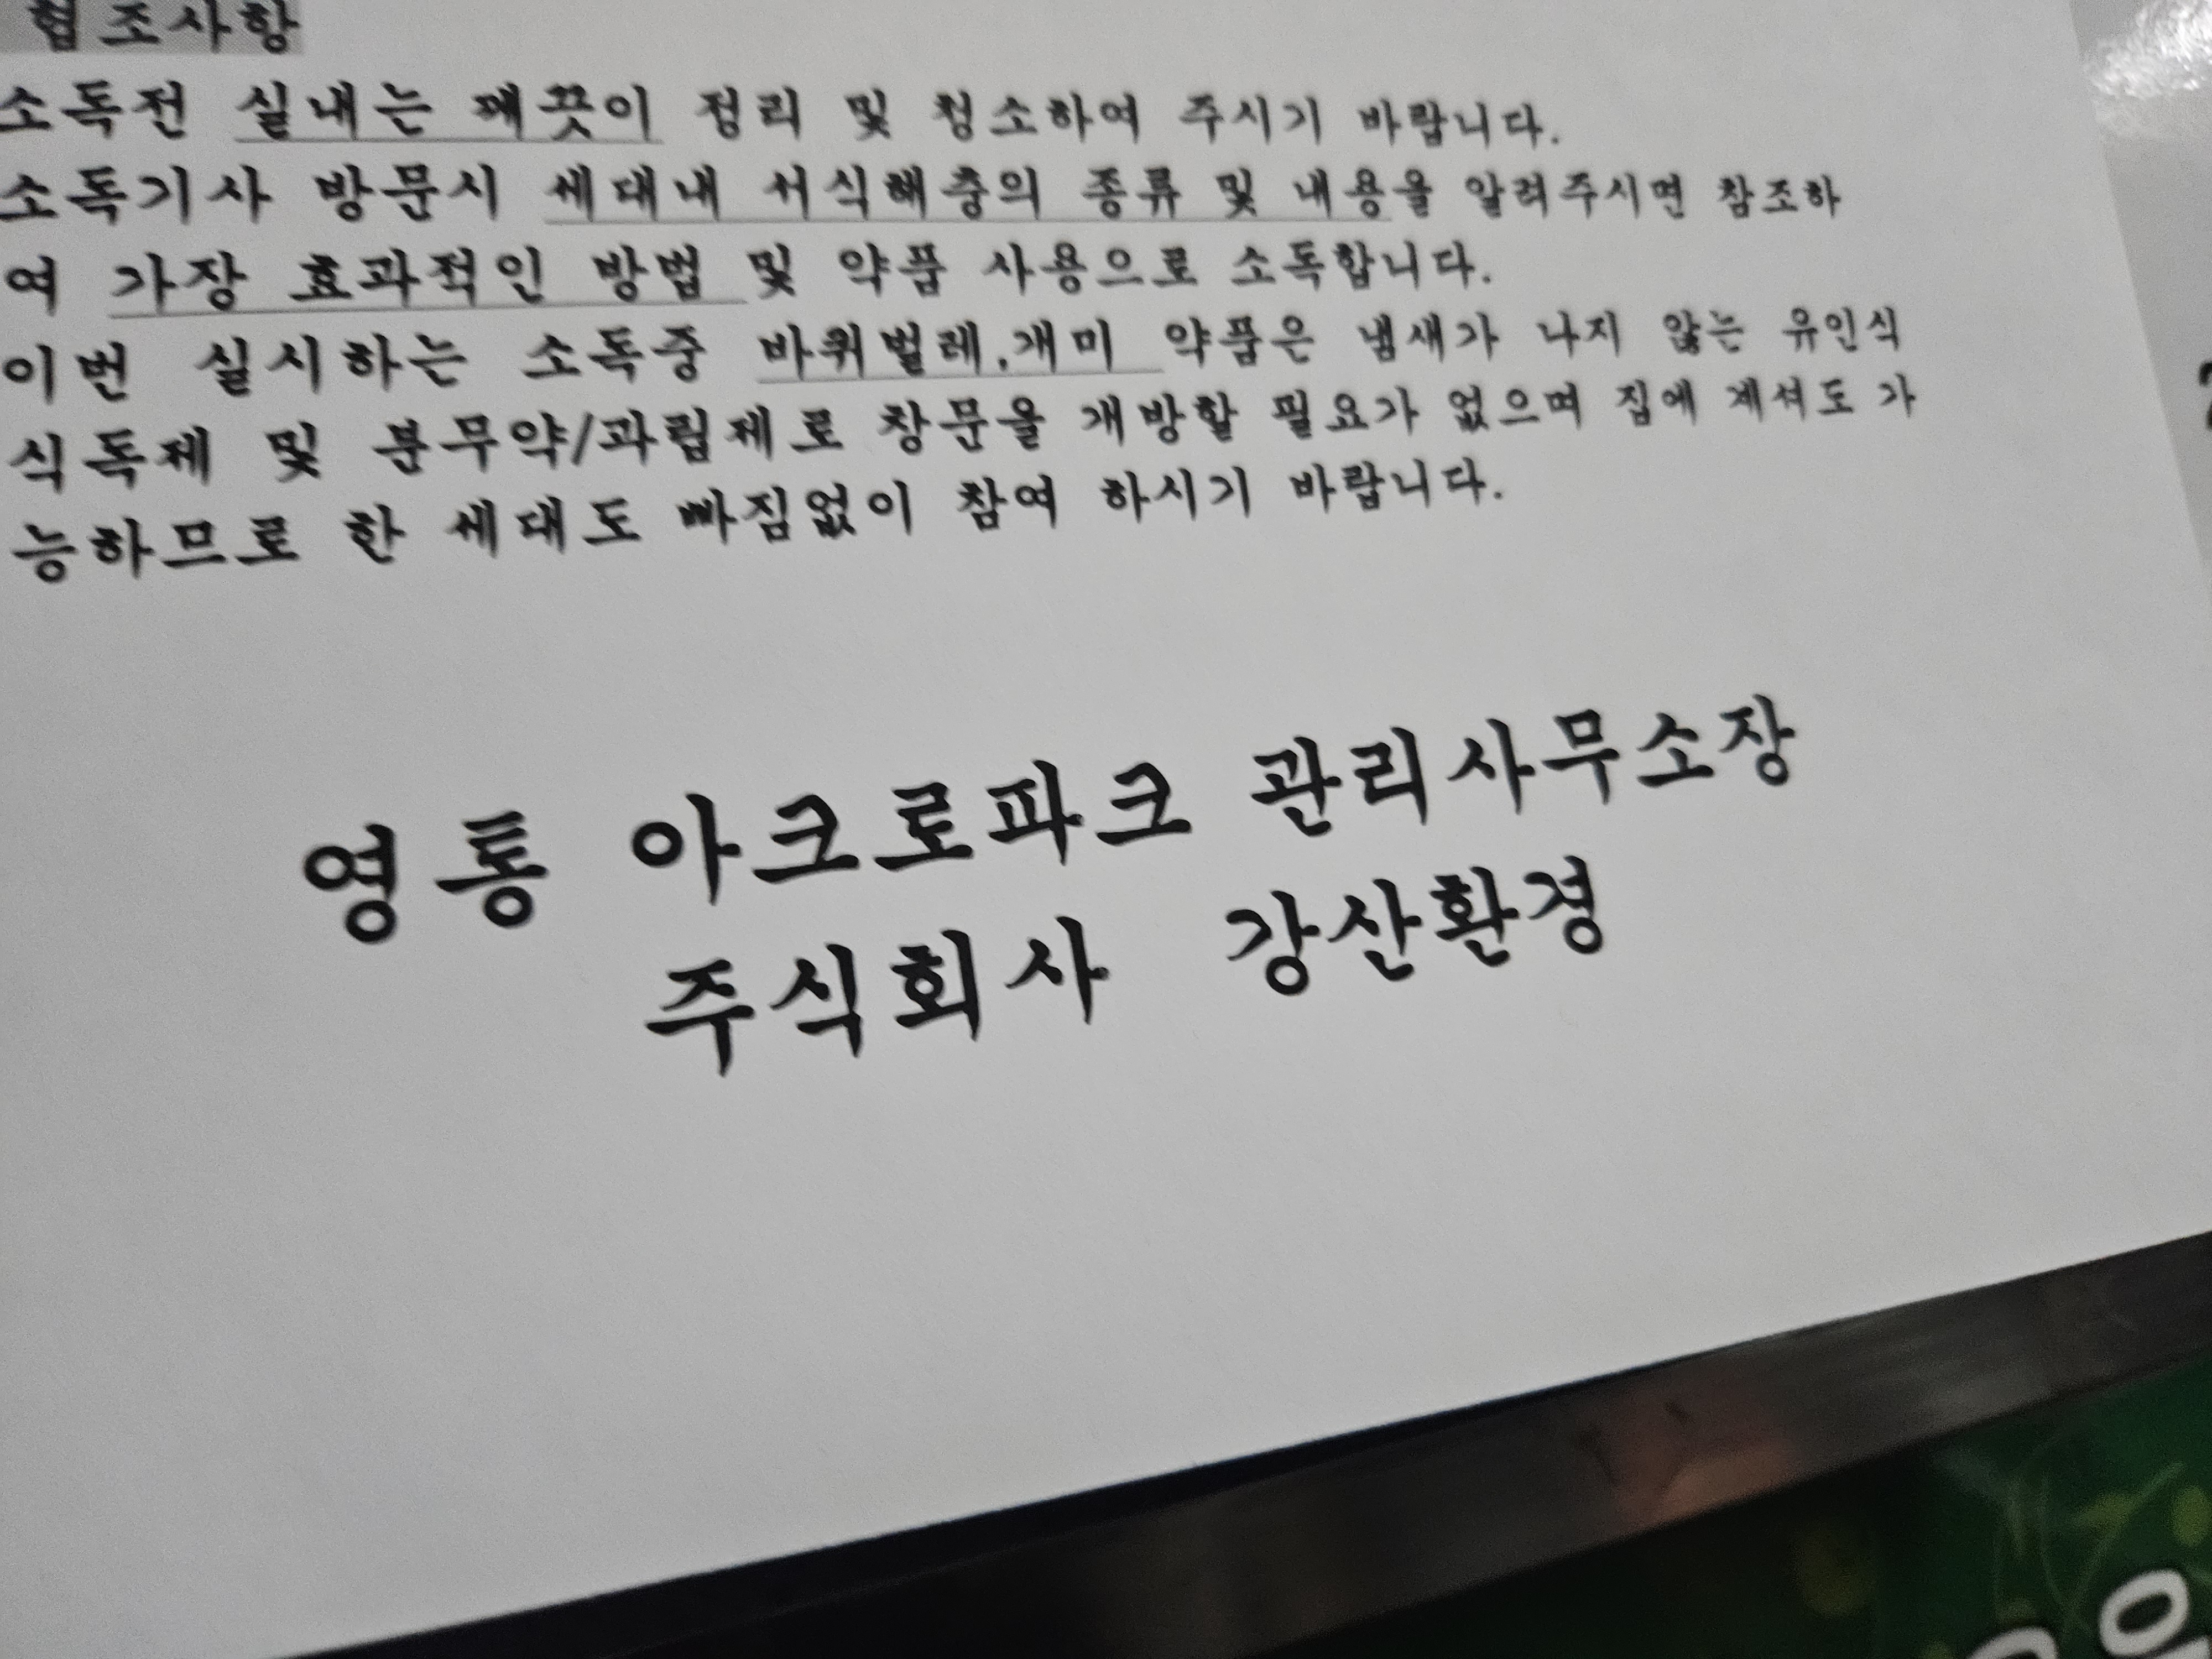 협조사항
소독전 실내는 깨끗이 정리 및 청소하여 주시기 바랍니다.
소독기사 방문시 세대내 서식해충의 종류 및 내용을 알려주시면 참조하
여 가장 효과적인 방법 및 약품 사용으로 소독합니다.
이번 실시하는 소독중 바퀴벌레,개미 약품은 냄새가 나지 않는 유인식
식독제 및 분무약/과립제로 창문을 개방할 필요가 없으며 집에 계셔도 가
능하므로 한 세대도 빠짐없이 참여 하시기 바랍니다.
영통 아크로파크 관리사무소장
주식회사 강산환경